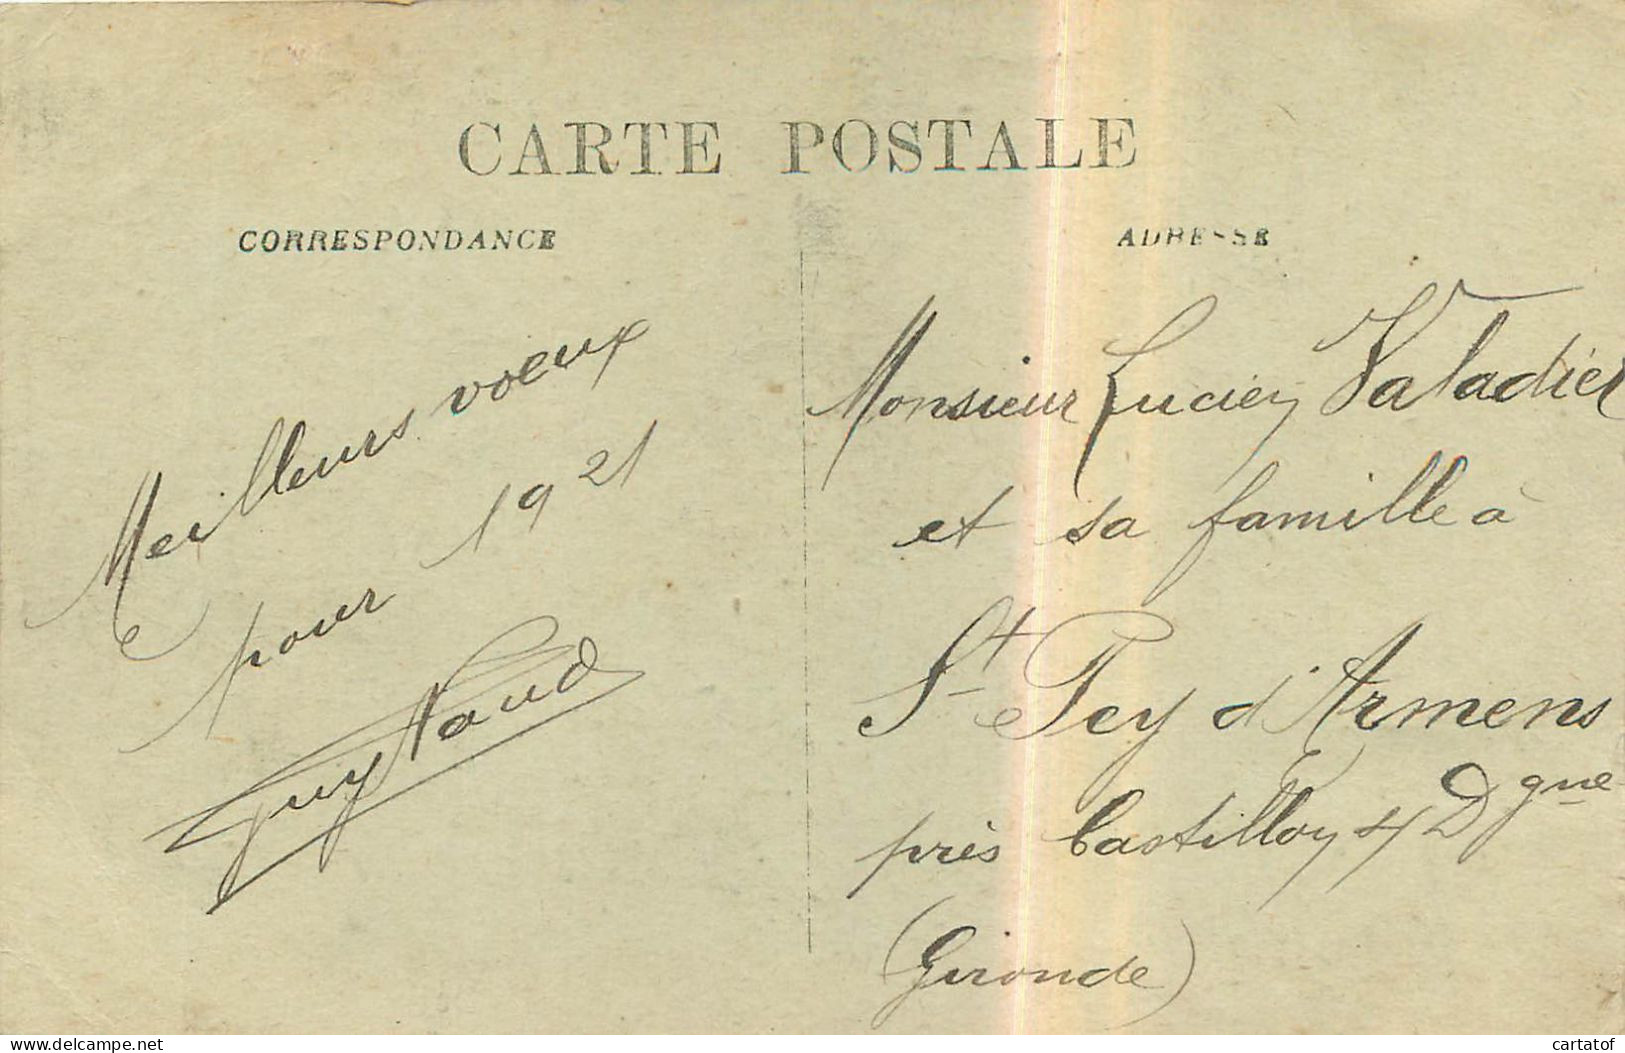 CARTE POSTALE
CORRESPONDANCE
ADRESSE
Meilleurs voeux
pour 1921
Guy
Monsieur Lucien Valadier
et sa famille à
St Pey d'Armens
près Castillon s/ Dgne
(Gironde)
www.delcampe.net
cartatof